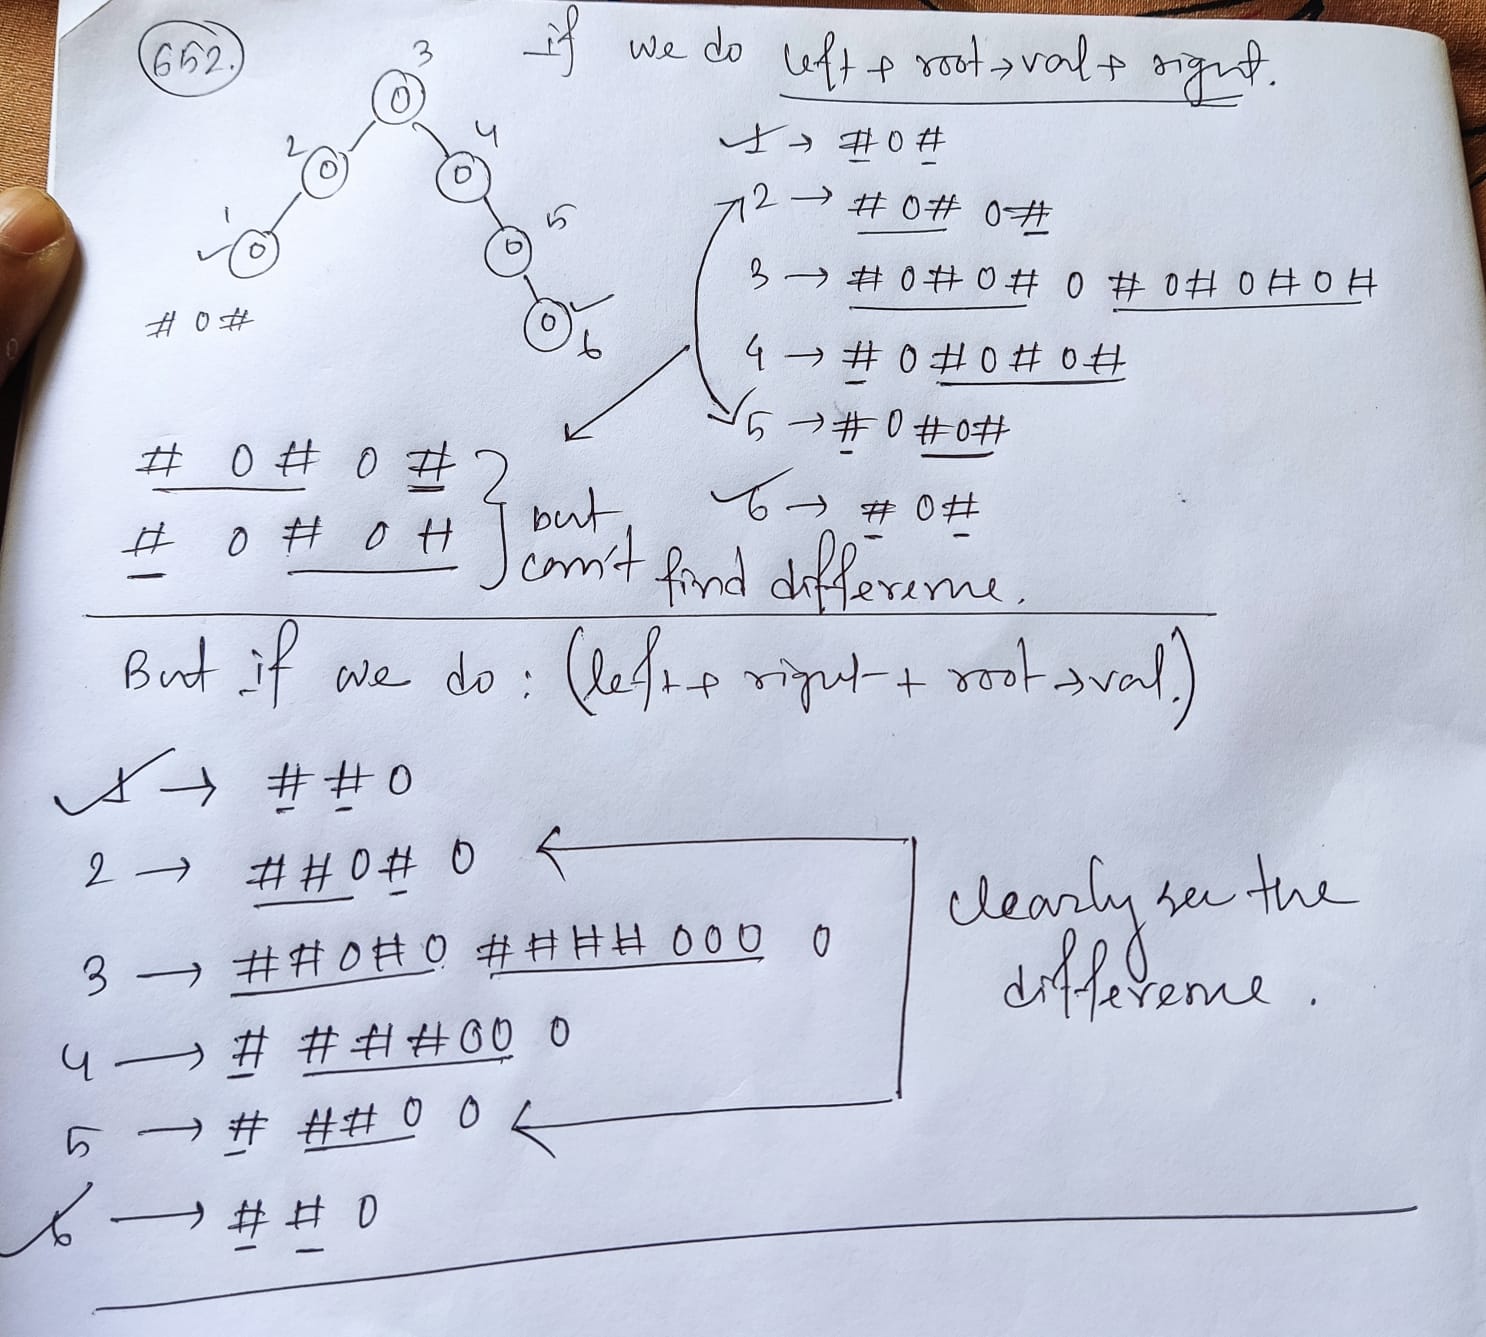 652.
if we do left + root→val + right.
3
2
4
1
5
6
0
0
0
0
0
0
# 0 #
1 → # 0 #
2 → # 0 # 0 #
3 → # 0 # 0 # 0 # 0 # 0 # 0 #
4 → # 0 # 0 # 0 #
5 → # 0 # 0 #
6 → # 0 #
# 0 # 0 #
# 0 # 0 #
but
can't find difference.
But if we do : (left + right + root→val.)
1 → # # 0
2 → # # 0 # 0
3 → # # 0 # 0 # # # # 0 0 0 0
4 → # # # # 0 0 0
5 → # # # 0 0
6 → # # 0
clearly see the
difference.